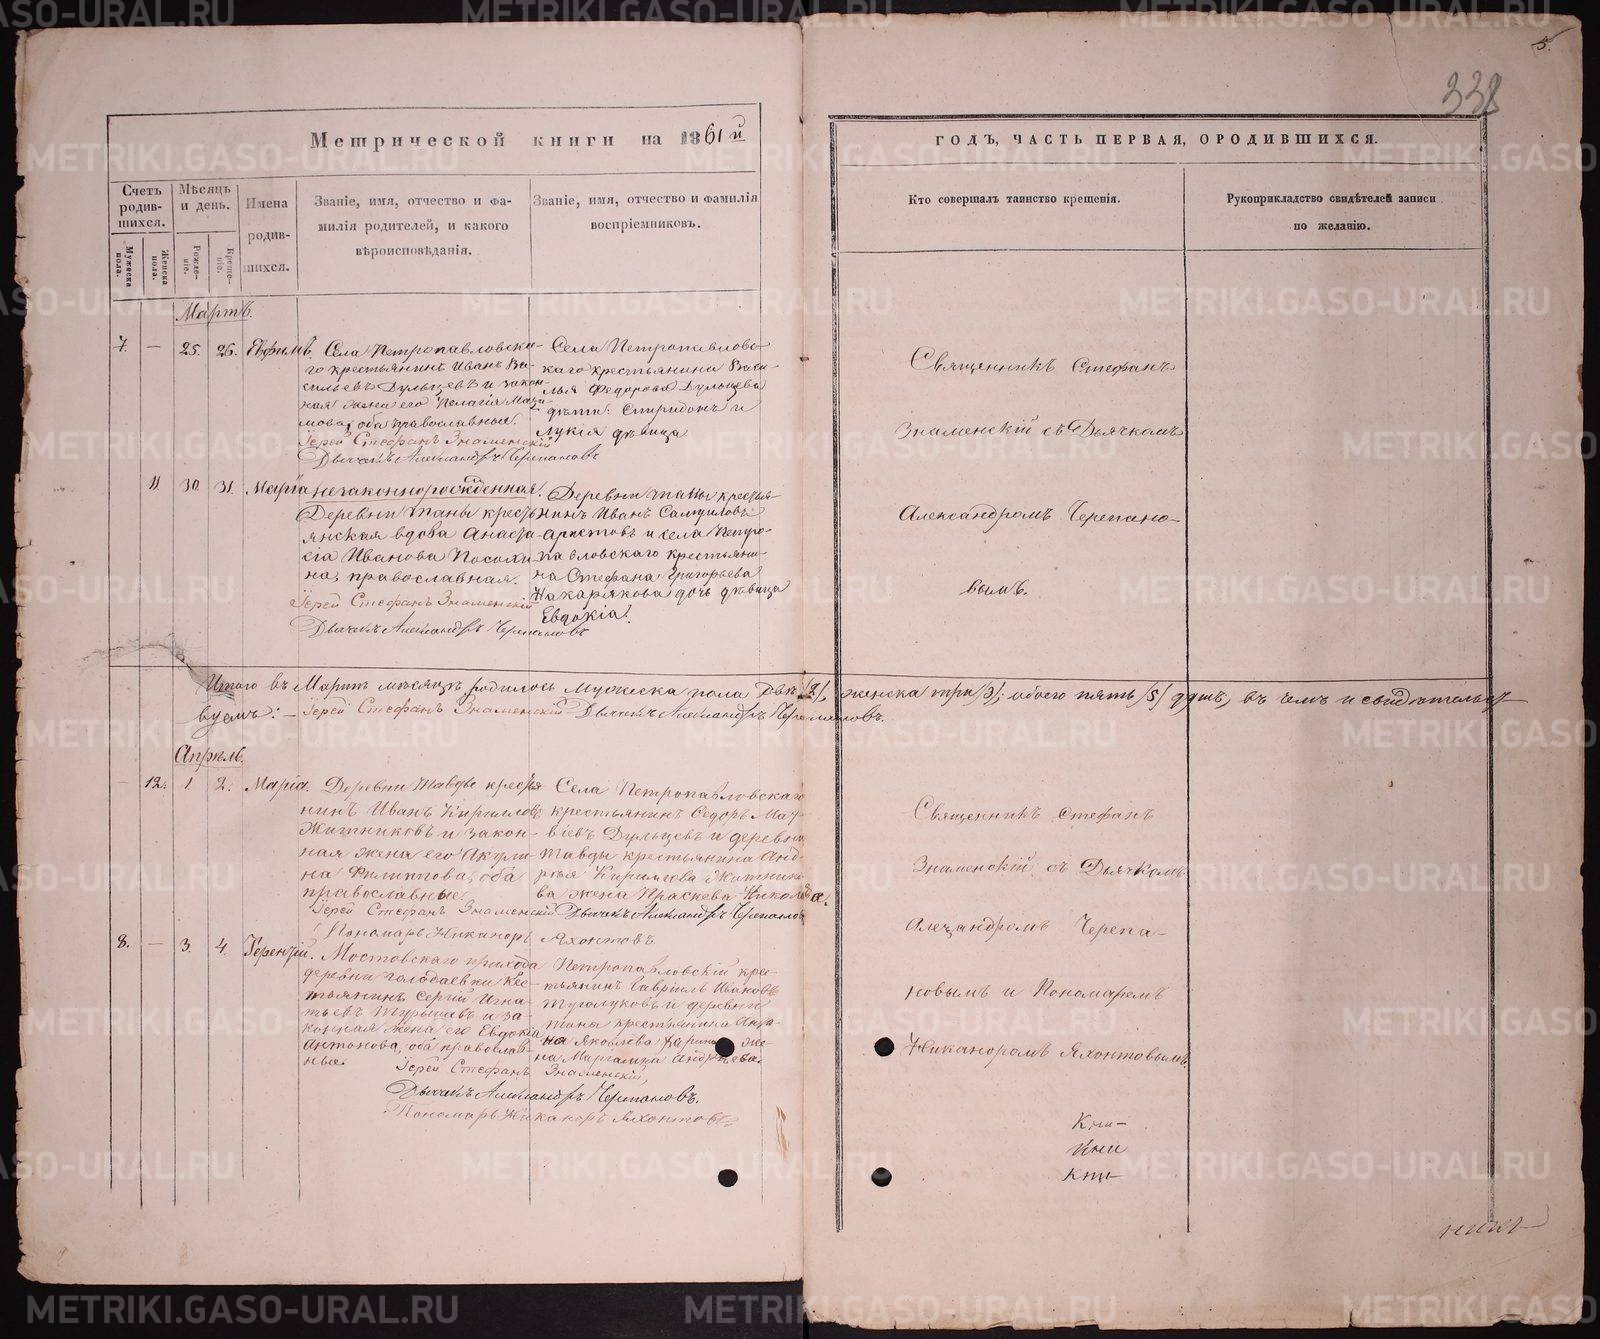 5.
338
Метрической книги на 1861й
ГОДЪ, ЧАСТЬ ПЕРВАЯ, ОРОДИВШИХСЯ.
Счетъ родив-шихся.
Мужеска пола.
Женска пола.
Мѣсяцъ и день.
Рожде-ніе.
Креще-ніе.
Имена родив-шихся.
Званіе, имя, отчество и фа-
милія родителей, и какого
вѣроисповѣданія.
Званіе, имя, отчество и фамилія
воспріемниковъ.
Кто совершалъ таинство крещенія.
Рукоприкладство свидѣтелей записи
по желанію.
Мартъ.
7. — 25. 26. Евфимъ.
Села Петропавловска-
го крестьянинъ Иванъ Ва-
сильевъ Дульцевъ и закон-
ная жена его Пелагія Макси-
мова, оба православные.
Іерей Стефанъ Знаменскій
Дьячекъ Александръ Черепановъ
Села Петропавловс-
каго крестьянина Васи-
лья Федорова Дульцева
дѣти: Спиридонъ и
Лукія дѣвица
Священникъ Стефанъ
Знаменскій съ Дьячкомъ
Александромъ Черепано-
вымъ.
11. 30. 31. Марія незаконнорожденная.
Деревни Таны кресть-
янская вдова Анаста-
сія Иванова Посохи-
на, православная.
Іерей Стефанъ Знаменскій
Дьячекъ Александръ Черепановъ
Деревни Таны крестья-
нинъ Иванъ Самуиловъ
Аристовъ и села Петро-
павловскаго крестьяни-
на Стефана Григорьева
Накарякова дочь дѣвица
Евдокія.
Итого въ Мартѣ мѣсяцѣ родилось мужеска пола два /2/, женска три /3/; обоего пять /5/ душъ, въ чемъ и свидѣтельст-
вуемъ: – Іерей Стефанъ Знаменскій Дьячекъ Александръ Черепановъ.
Апрѣль.
— 12. 1 2. Марія.
Деревни Тавды крестья
нинъ Иванъ Кириловъ
Житниковъ и закон-
ная жена его Акули-
на Филиппова, оба
православные
Іерей Стефанъ Знаменскій Дьячекъ Александръ Черепановъ
Пономарь Никаноръ Яхонтовъ
Села Петропавловскаго
крестьянинъ Федоръ Мат-
віевъ Дульцевъ и деревни
Тавды крестьянина Анд-
рея Кирилова Житнико-
ва жена Праскева Николаева.
Священникъ Стефанъ
Знаменскій съ Дьячкомъ
Александромъ Черепа-
новымъ и Пономаремъ
Никаноромъ Яхонтовымъ
8. — 3. 4. Терентій.
Мостовскаго прихода
деревни Голодаевки крес-
тьянинъ Сергій Игна-
тьевъ Турышевъ и за-
конная жена его Евдокія
Антонова, оба православ-
ные.
Іерей Стефанъ Знаменскій,
Дьячекъ Александръ Черепановъ.
Пономарь Никаноръ Яхонтовъ
Петропавловскій крес-
тьянинъ Гавріилъ Ивановъ
Туголуковъ и деревни
Таны крестьянина
на Яковлева
на Андреева.
METRIKI.GASO-URAL.RU